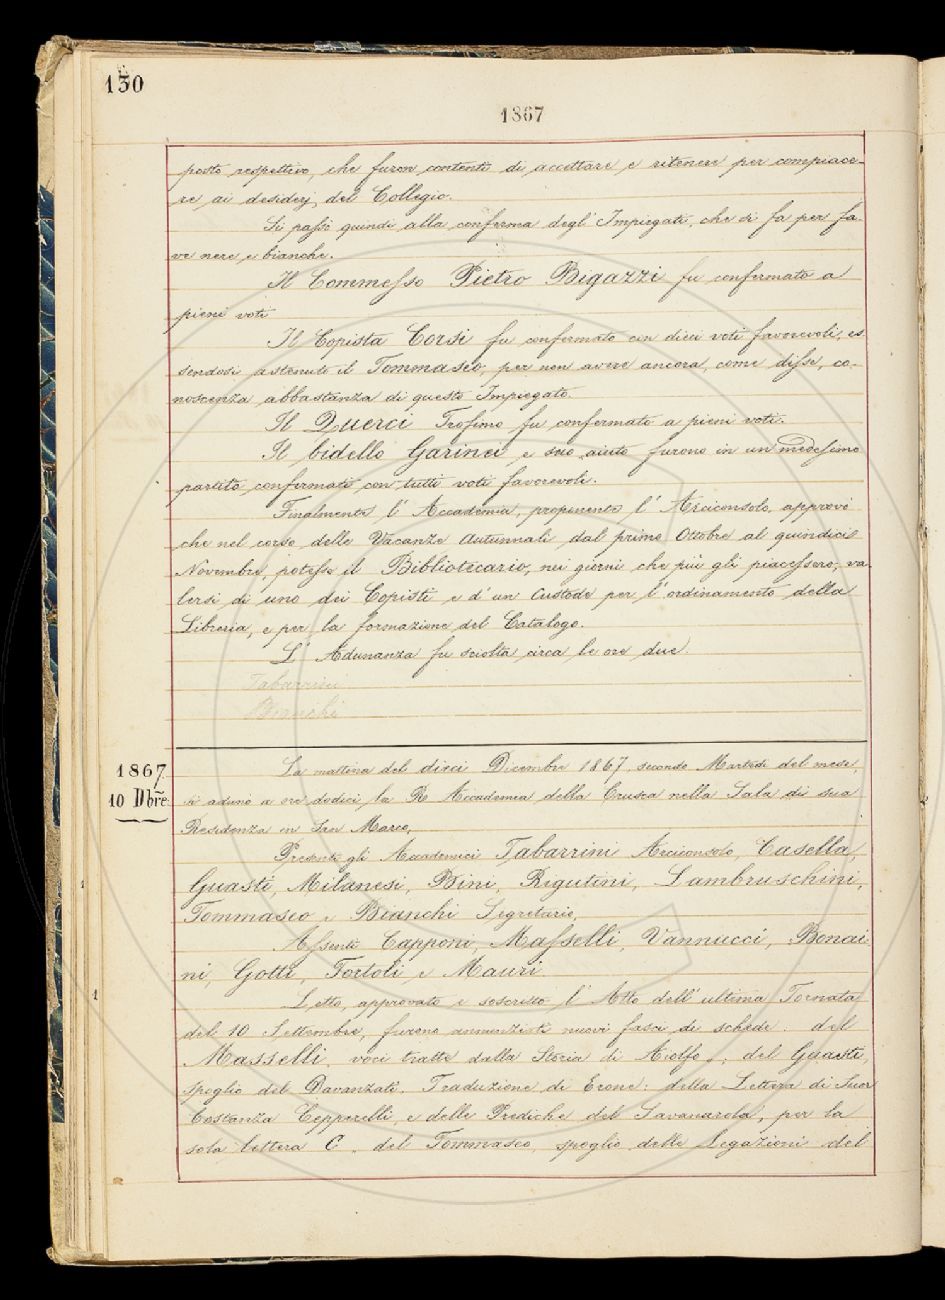 130
1867
posto respettivo, che furon contenti di accettare e ritenere per compiace-
re ai desiderj del Collegio.
Si passò quindi alla conferma degl' Impiegati, che si fa per fa-
ve nere e bianche.
Il Commesso Pietro Bigazzi fu confermato a
pieni voti
Il Copista Corsi fu confermato con dieci voti favorevoli, es-
sendosi astenuto il Tommaseo, per non avere ancora, come disse, co-
noscenza abbastanza di questo Impiegato.
Il Querci Trofimo fu confermato a pieni voti.
Il bidello Garinei e suo aiuto furono in un medesimo
partito confermati con tutti voti favorevoli.
Finalmente l' Accademia, proponente l' Arciconsolo, approvò
che nel corso delle Vacanze autunnali dal primo Ottobre al quindici
Novembre, potesse il Bibliotecario, nei giorni che più gli piacessero, va-
lersi di uno dei Copisti e d' un Custode per l' ordinamento della
Libreria, e per la formazione del Catalogo.
L' Adunanza fu sciolta circa le ore due.
Tabarrini
Bianchi
1867
10 Dbre
La mattina del dieci Dicembre 1867, secondo Martedì del mese,
si adunò a ore dodici la R Accademia della Crusca nella Sala di sua
Residenza in San Marco.
Presenti gli Accademici Tabarrini Arciconsolo, Casella,
Guasti, Milanesi, Bini, Rigutini, Lambruschini,
Tommaseo e Bianchi Segretario.
Assenti Capponi, Masselli, Vannucci, Bonai
ni, Gotti, Tortoli e Mauri
Letto, approvato e soscritto l' Atto dell' ultima Tornata
del 10 Settembre, furono annunziati nuovi fasci di schede: del
Masselli voci tratte dalla Storia di Aiolfo; del Guasti,
spoglio del Davanzati, Traduzione di Erone: della Lettera di Suor
Costanza Cepperelli, e delle Prediche del Savonarola, per la
sola lettera C. del Tommaseo, spoglio delle Legazioni del